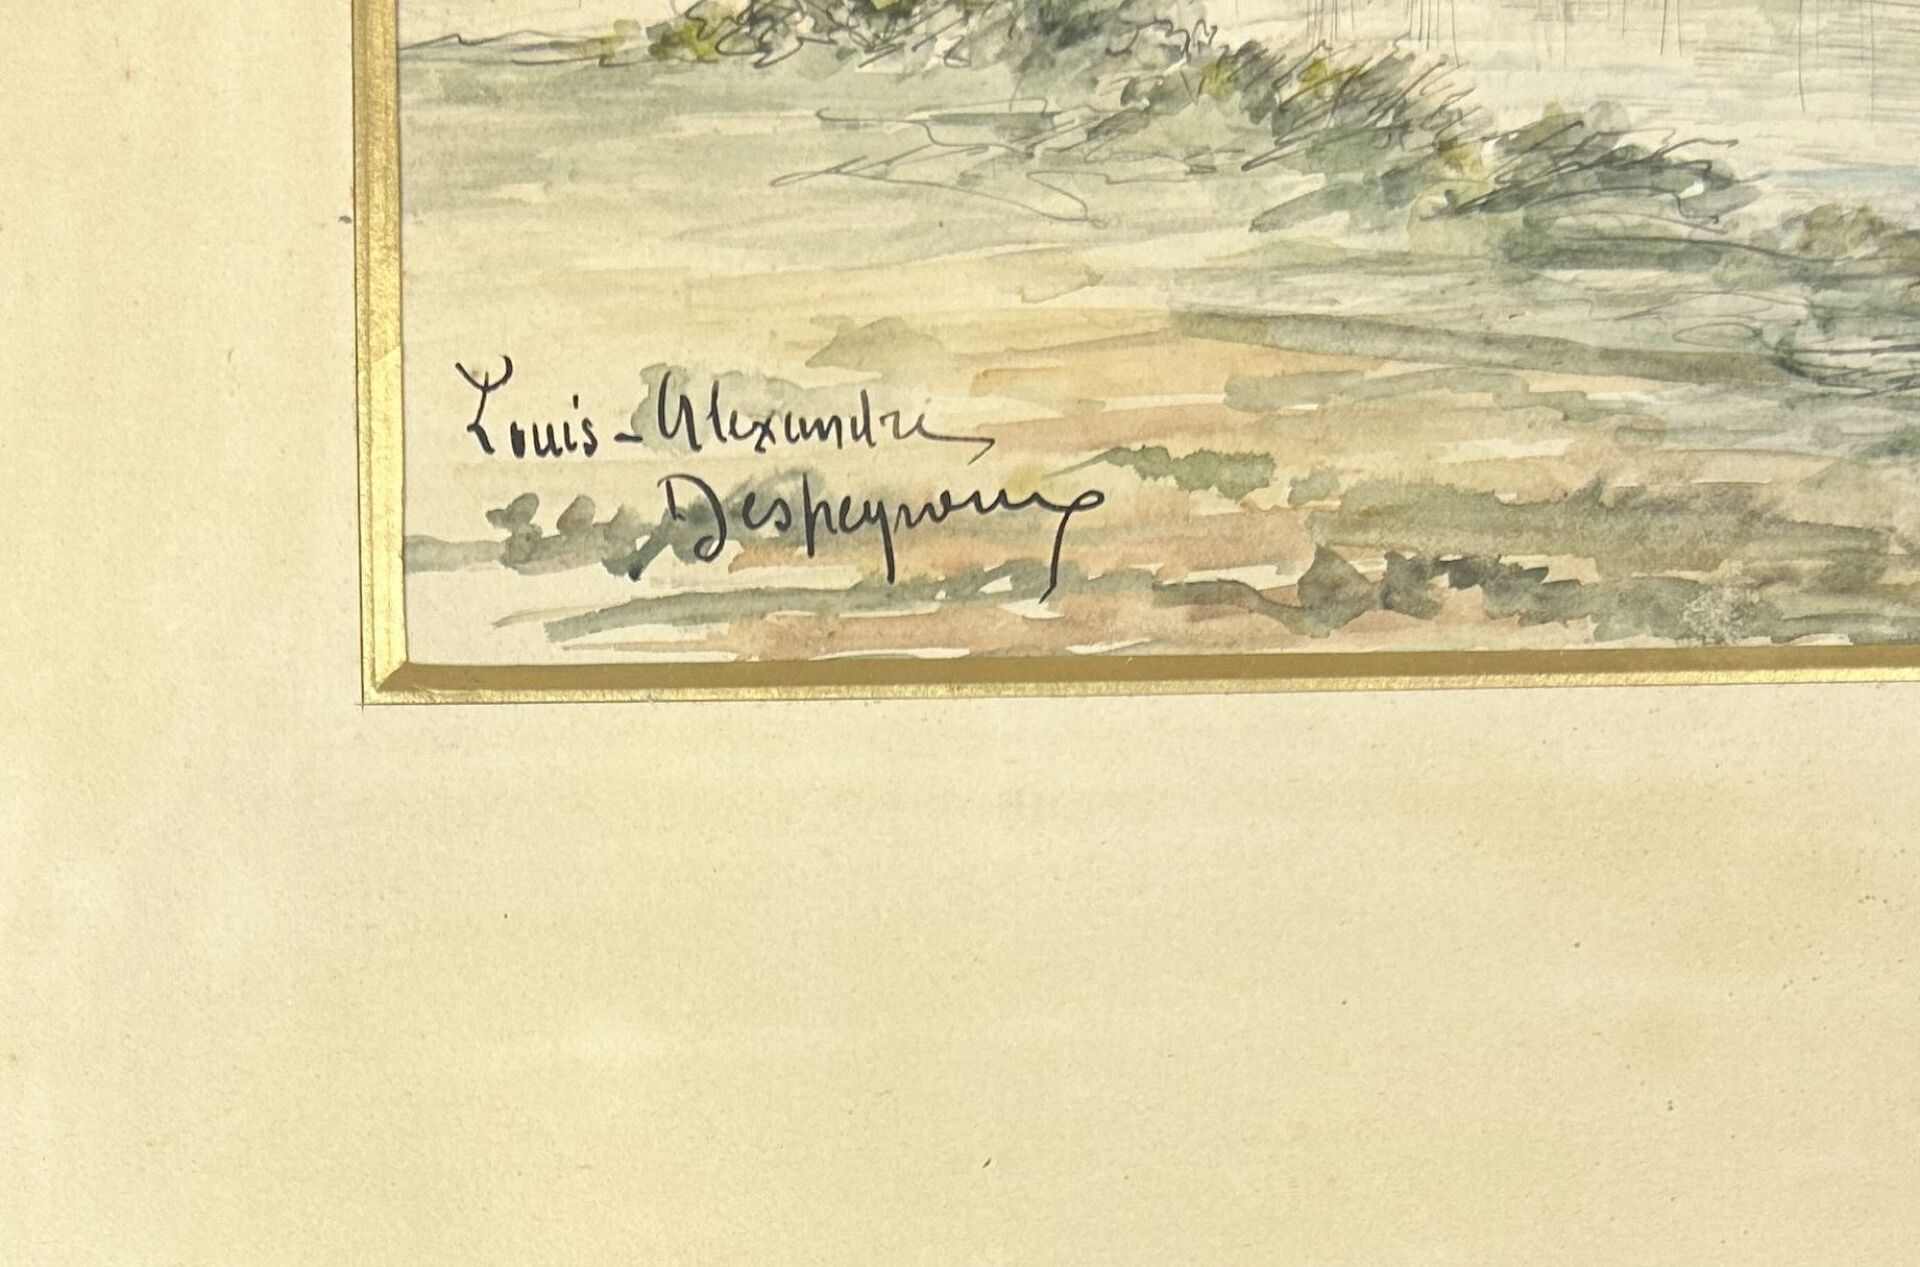 Louis-Alexandre
Despeyroux